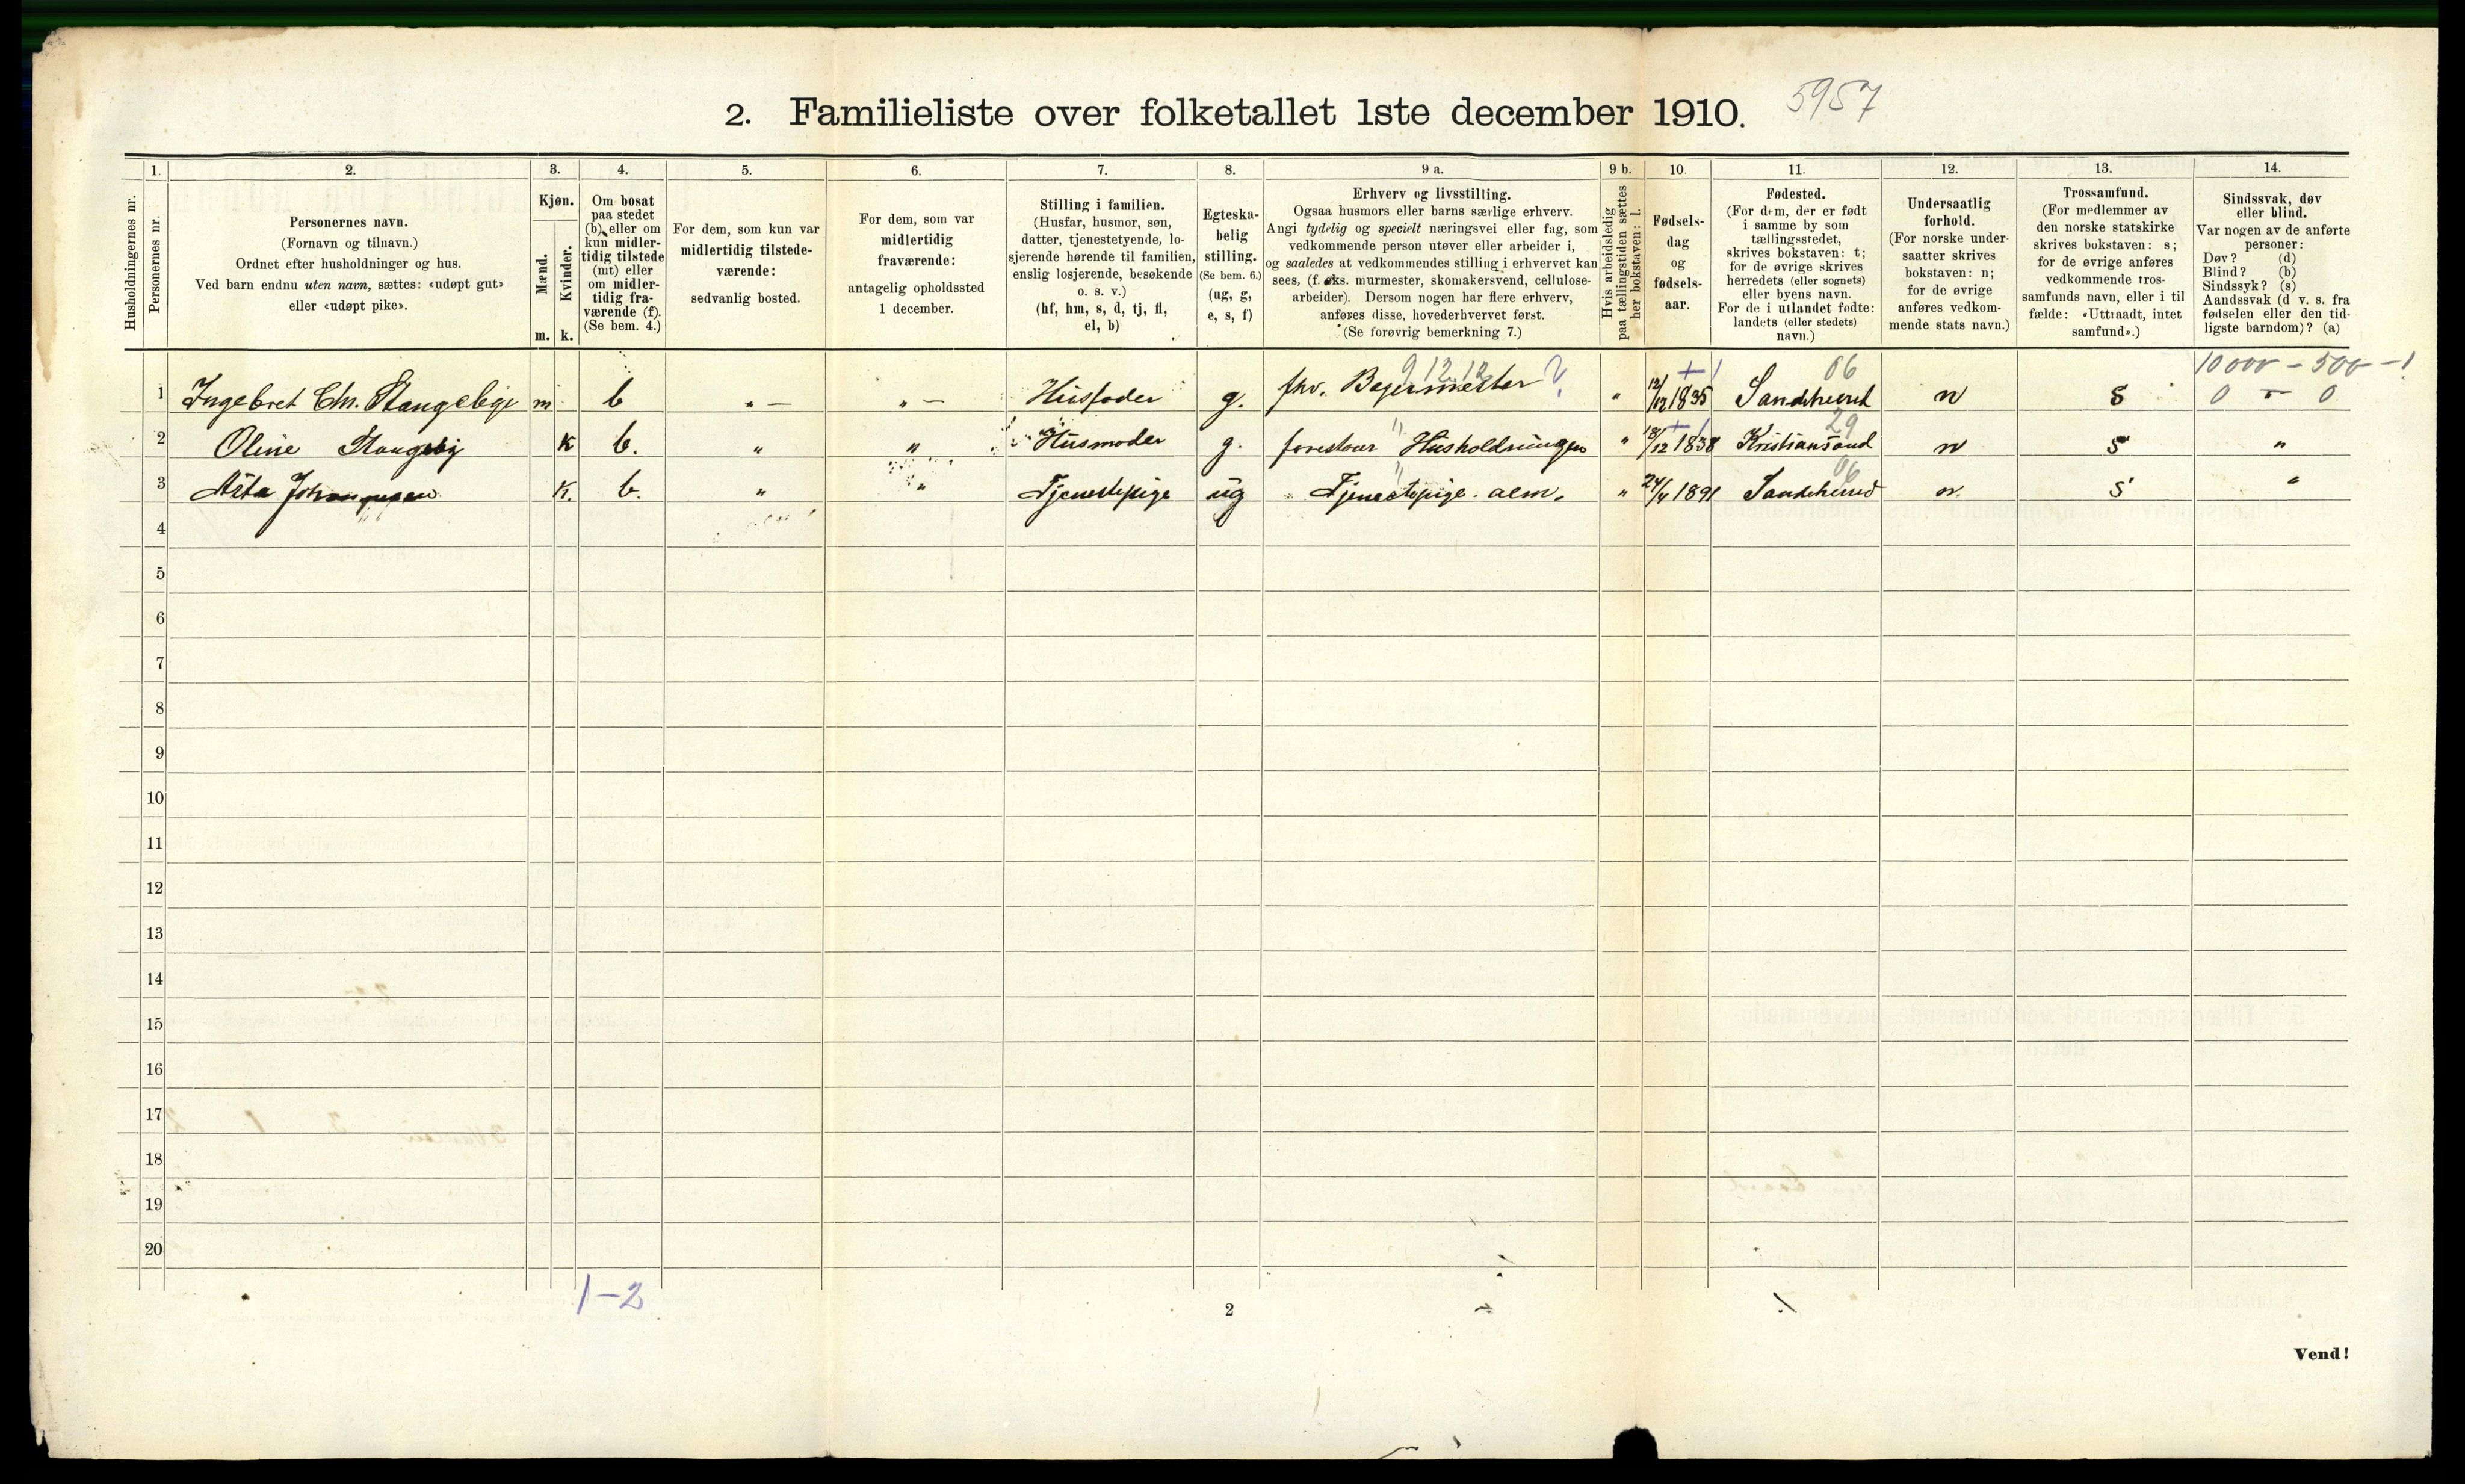 2. Familieliste over folketallet 1ste december 1910. 5957
Husholdningernes nr.
1.
Personernes nr.
2.
Personernes navn.
(Fornavn og tilnavn.)
Ordnet efter husholdninger og hus.
Ved barn endnu uten navn, sættes: «udøpt gut»
eller «udøpt pike».
3.
Kjøn.
Mænd.
Kvinder.
m. k.
4.
Om bosat
paa stedet
(b) eller om
kun midler-
tidig tilstede
(mt) eller
om midler-
tidig fra-
værende (f).
(Se bem. 4.)
5.
For dem, som kun var
midlertidig tilstede-
værende:
sedvanlig bosted.
6.
For dem, som var
midlertidig
fraværende:
antagelig opholdssted
1 december.
7.
Stilling i familien.
(Husfar, husmor, søn,
datter, tjenestetyende, lo-
sjerende hørende til familien,
enslig losjerende, besøkende
o. s. v.)
(hf, hm, s, d, tj, fl,
el, b)
8.
Egteska-
belig
stilling.
(Se bem. 6.)
(ug, g,
e, s, f)
9 a.
Erhverv og livsstilling.
Ogsaa husmors eller barns særlige erhverv.
Angi tydelig og specielt næringsvei eller fag, som
vedkommende person utøver eller arbeider i,
og saaledes at vedkommendes stilling i erhvervet kan
sees, (f. eks. murmester, skomakersvend, cellulose-
arbeider). Dersom nogen har flere erhverv,
anføres disse, hovederhvervet først.
(Se forøvrig bemerkning 7.)
9 b.
Hvis arbeidsledig
paa tællingstiden sættes
her bokstaven: l.
10.
Fødsels-
dag
og
fødsels-
aar.
11.
Fødested.
(For dem, der er født
i samme by som
tællingsstedet,
skrives bokstaven: t;
for de øvrige skrives
herredets (eller sognets)
eller byens navn.
For de i utlandet fødte:
landets (eller stedets)
navn.)
12.
Undersaatlig
forhold.
(For norske under-
saatter skrives
bokstaven: n;
for de øvrige
anføres vedkom-
mende stats navn.)
13.
Trossamfund.
(For medlemmer av
den norske statskirke
skrives bokstaven: s;
for de øvrige anføres
vedkommende tros-
samfunds navn, eller i til
fælde: «Uttraadt, intet
samfund».)
14.
Sindssvak, døv
eller blind.
Var nogen av de anførte
personer:
Døv? (d)
Blind? (b)
Sindssyk? (s)
Aandssvak (d v. s. fra
fødselen eller den tid-
ligste barndom)? (a)
9 12.12 06 10000 - 500 - 1
1 Ingebret Chr. Stangebye m b " — " — Husfader g. fhv. Bagermester " 12/12 1835 Sandeherred n S 0 - 0
29
2 Oline Stangeby K b. " " Husmoder g. forestaar Husholdningen " 18/12 1838 Kristiansand n S "
06
3 Asta Johannesen K. b. " " Tjenestepige ug Tjenestepige alm. " 24/4 1891 Sandeherred n. S "
4
5
6
7
8
9
10
11
12
13
14
15
16
17
18
19
20
1-2
2
Vend!